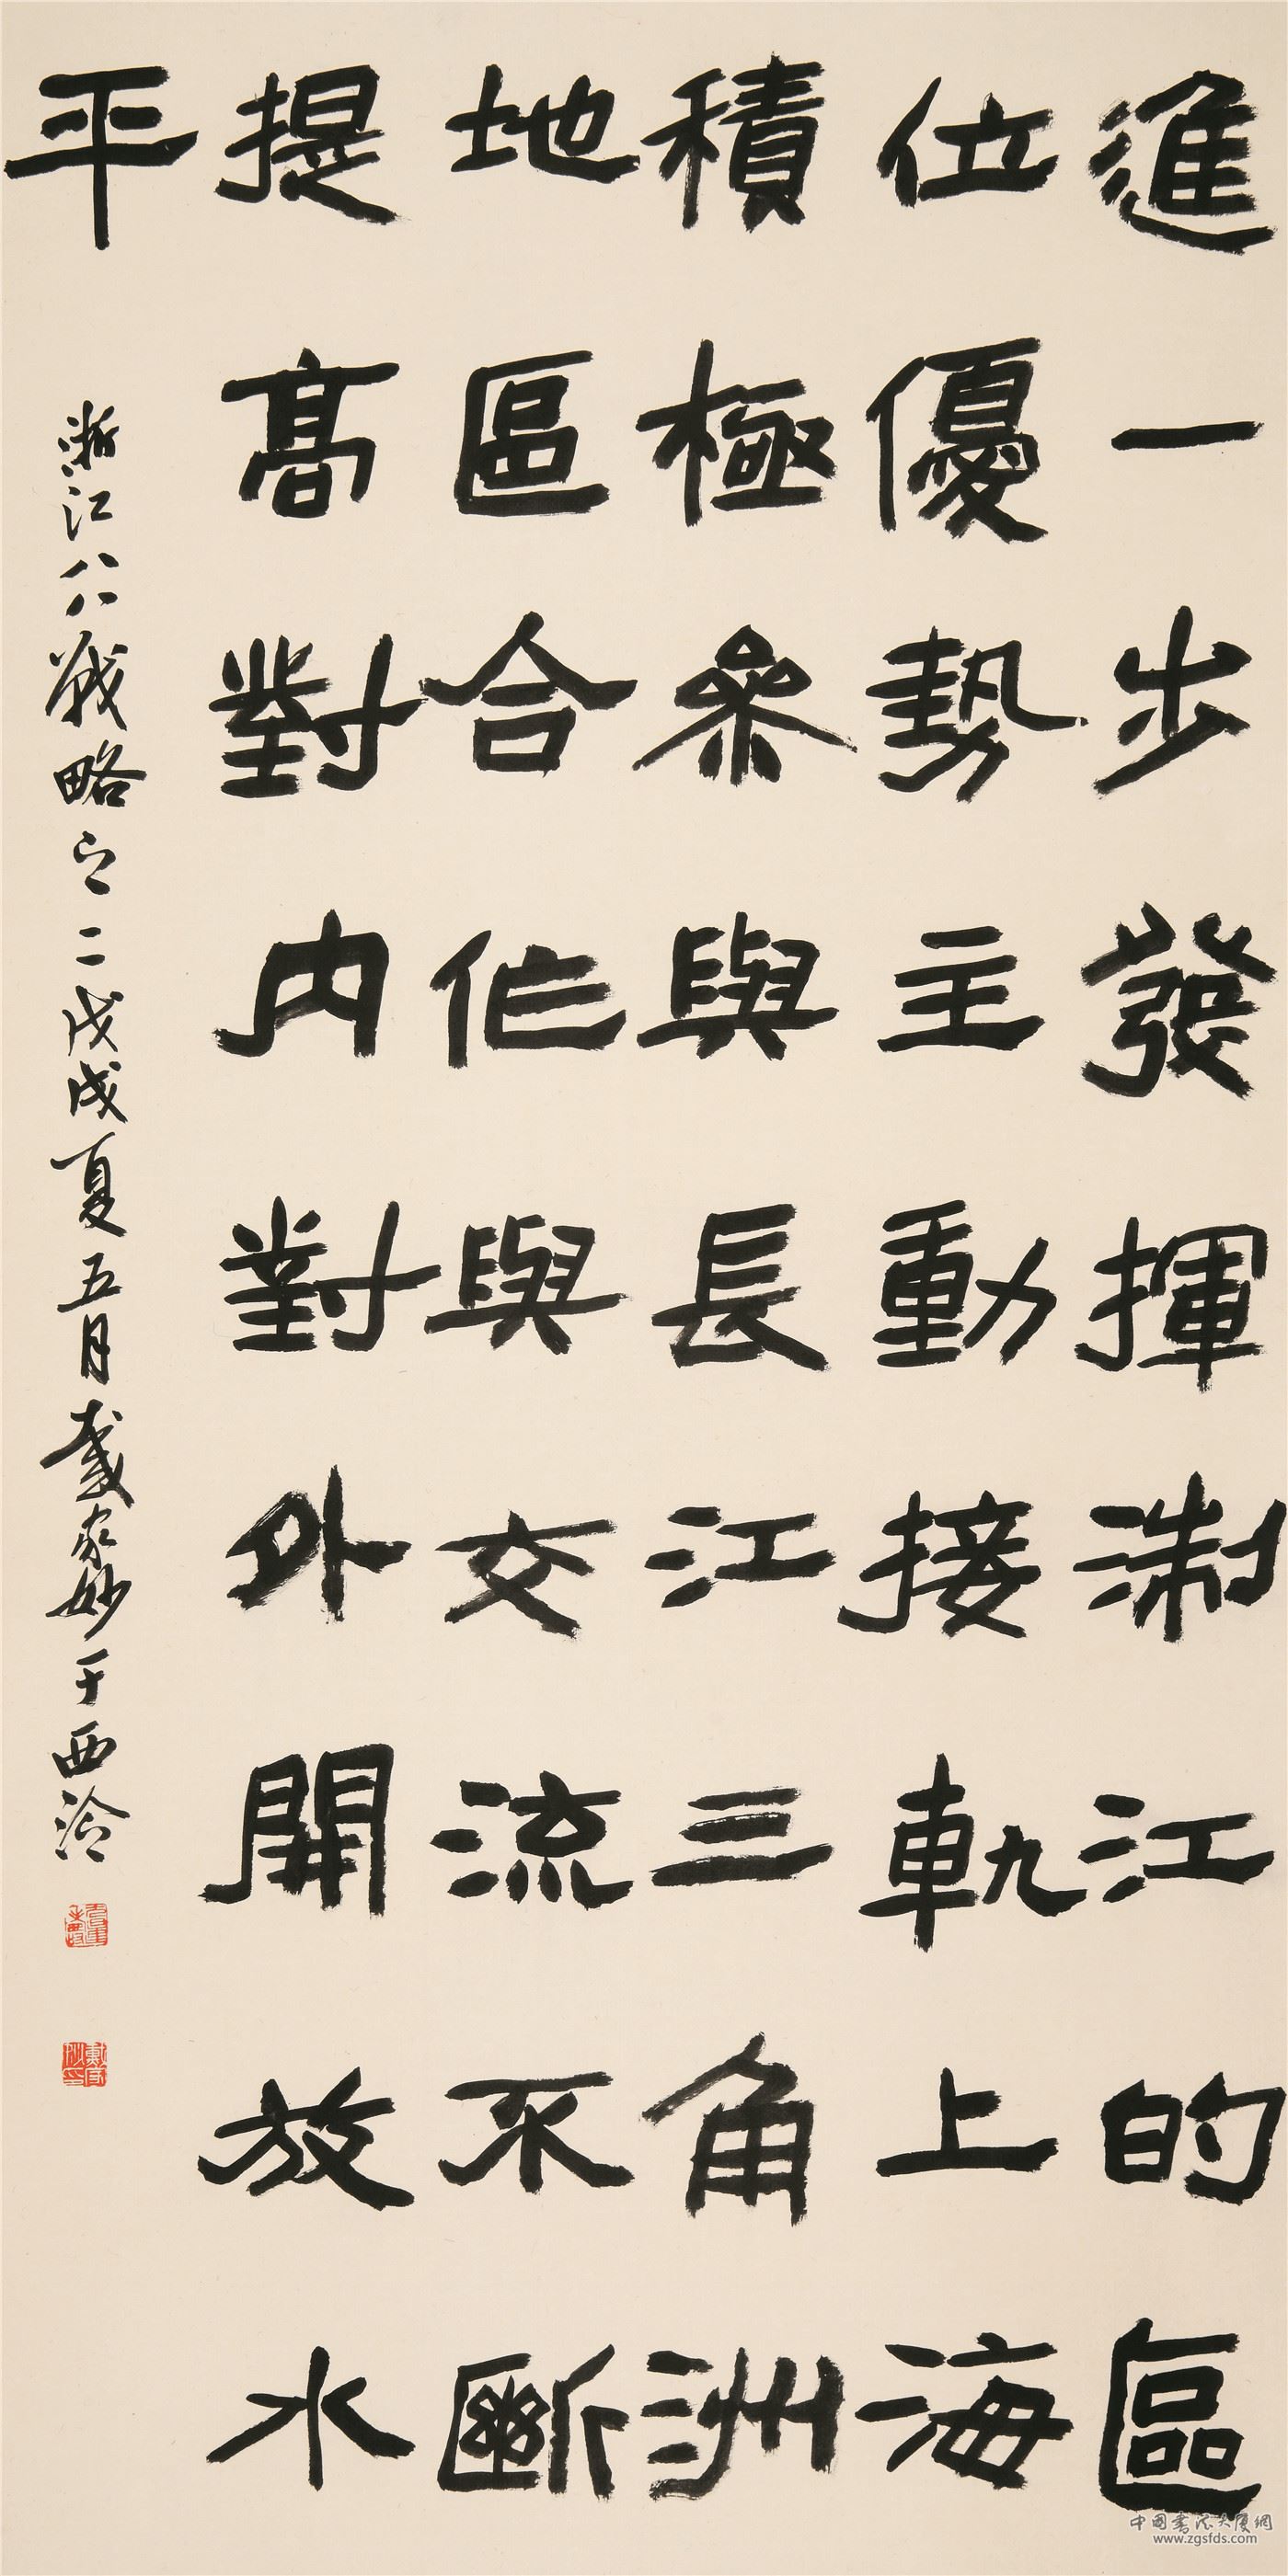 進一步發揮淛江的區
位優勢主動接軌上海
積極參與長江三角洲
地區合作與交流不斷
提高對內對外開放水
平
浙江八八戰略之二戊戌夏五月戴家妙于西泠
中国书法大厦网
www.zgsfds.com